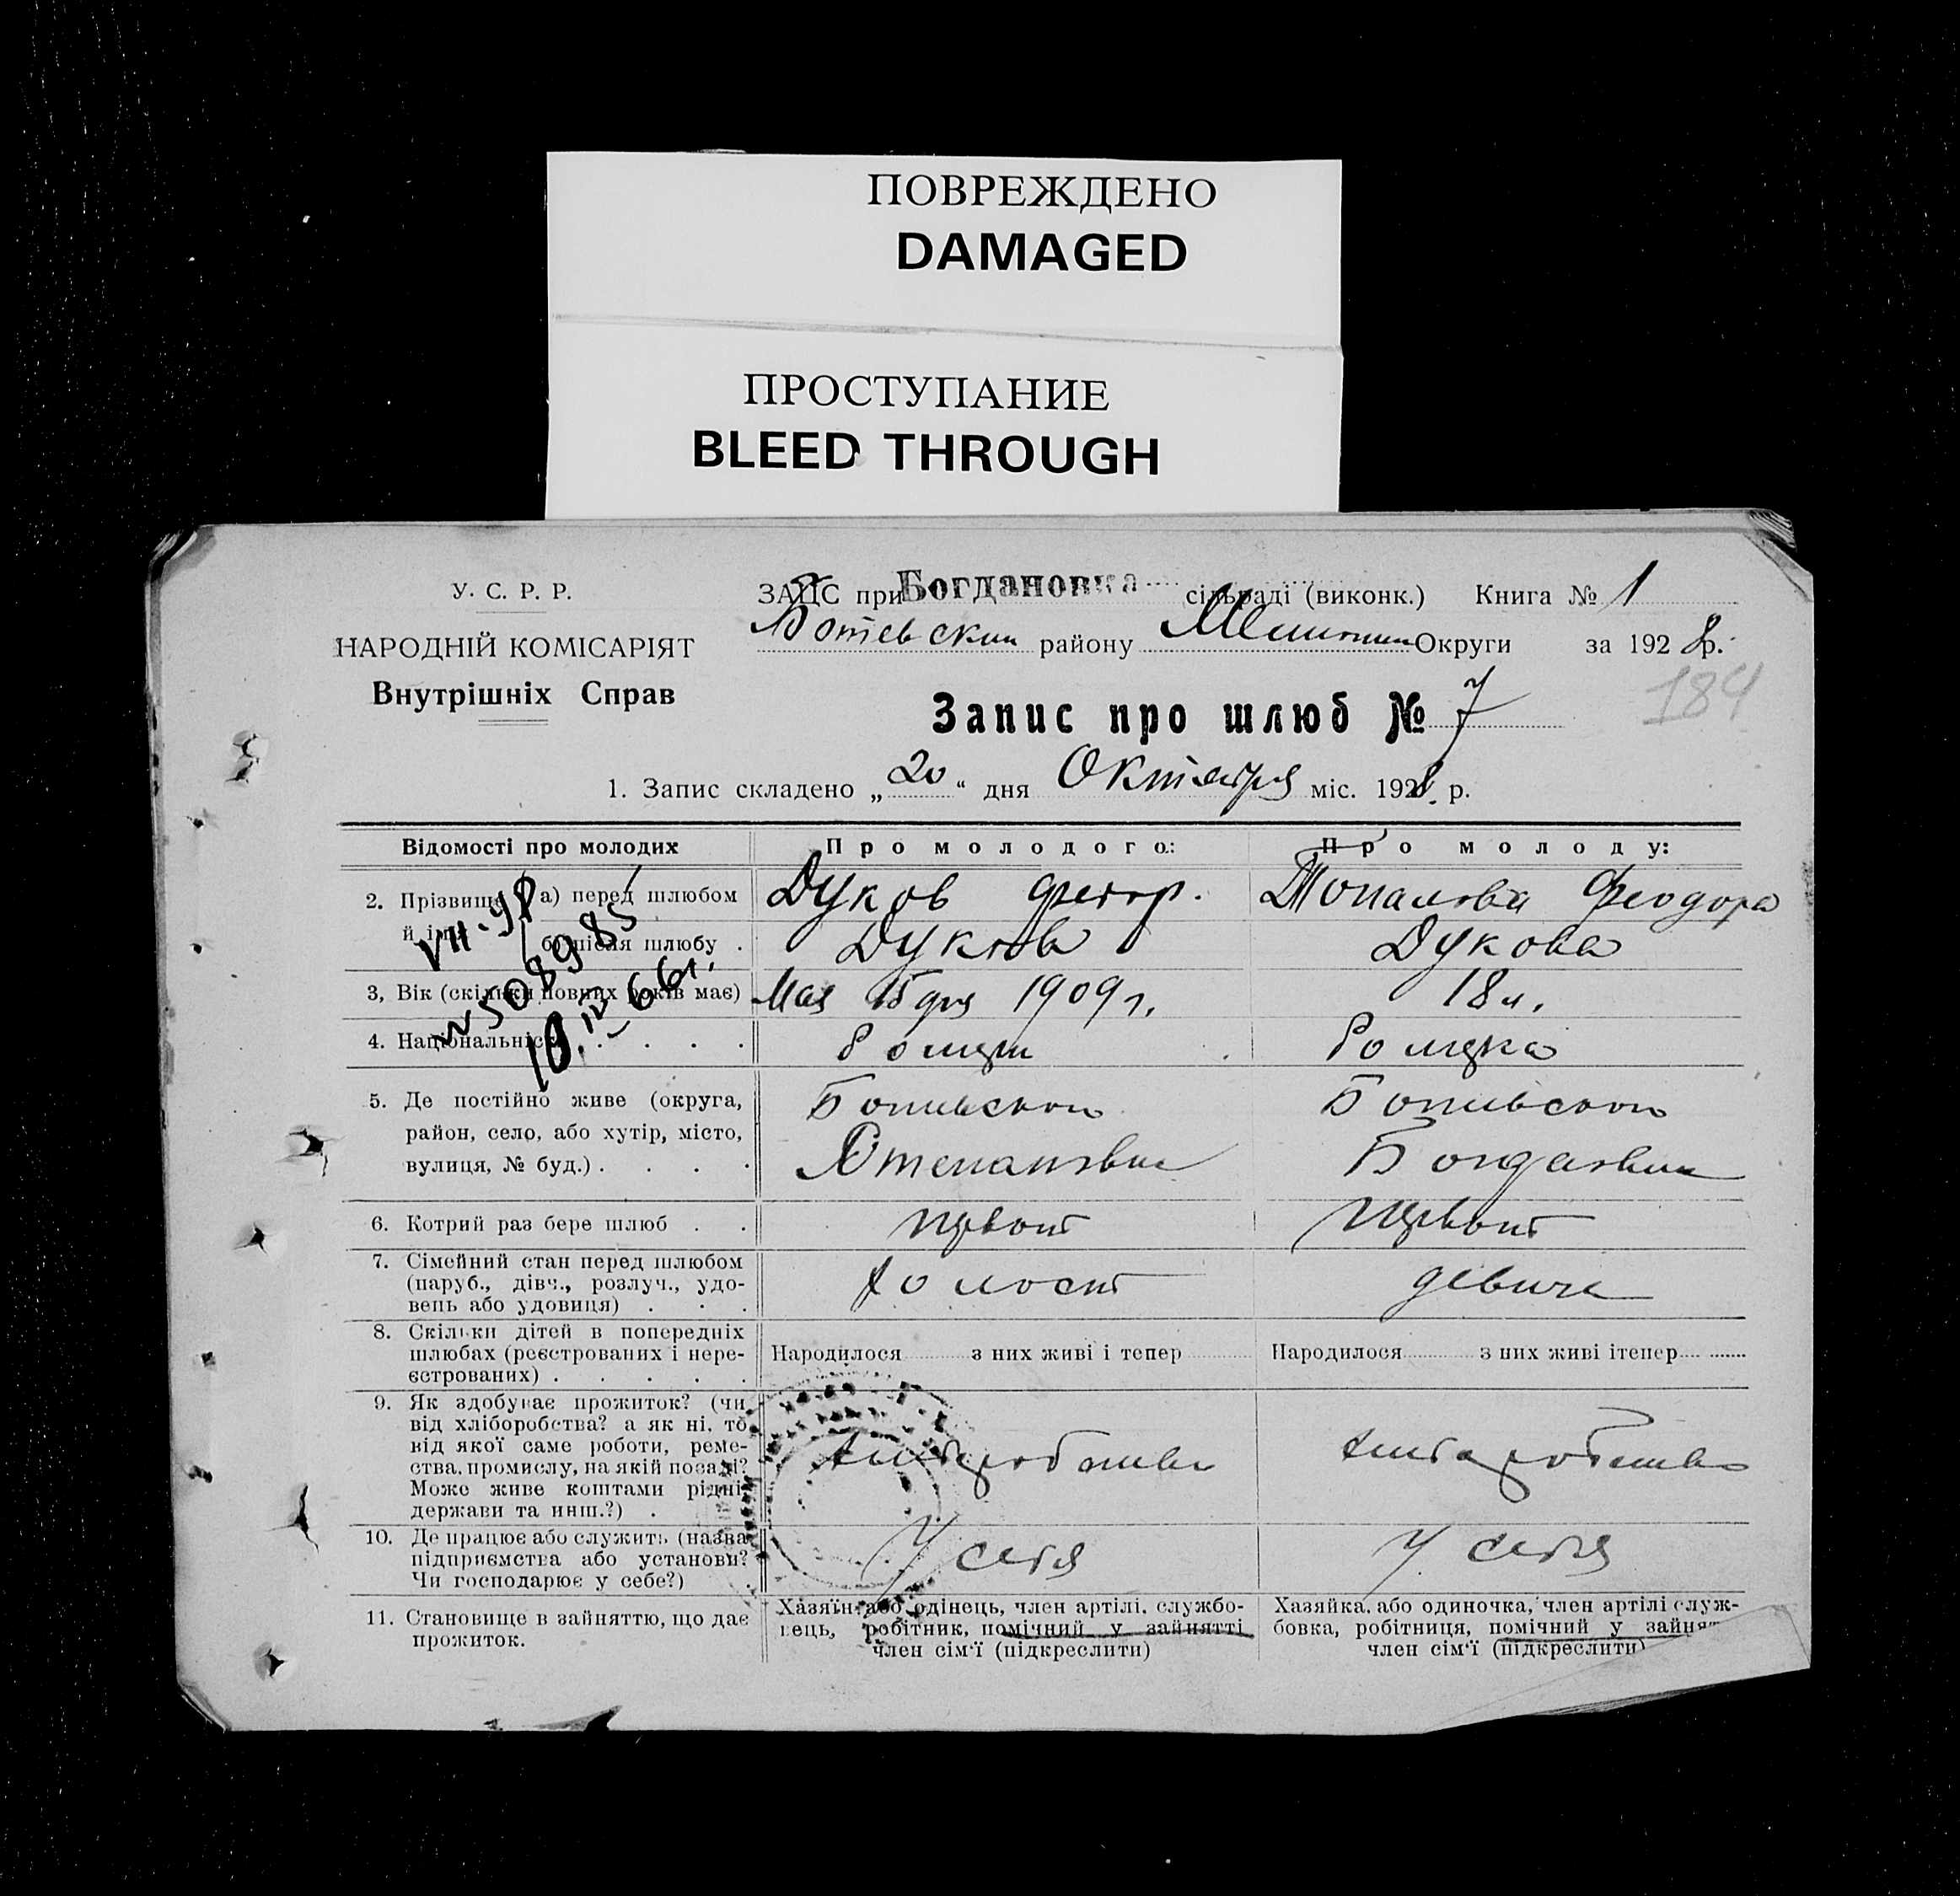 ПОВРЕЖДЕНО
DAMAGED
ПРОСТУПАНИЕ
BLEED THROUGH
У. С. Р. Р.
НАРОДНІЙ КОМІСАРІЯТ
Внутрішніх Справ
ЗАГС при Богдановка сільраді (виконк.) Книга № 1
району Округи за 1928 р.
184
Запис про шлюб № 7
1. Запис складено „20“ дня Октября міс. 1928 р.
Відомості про молодих
Про молодого:
Про молоду:
2. Прізвище й ім'я
а) перед шлюбом
Дуков Федор.
Топалова Феодора
б) після шлюбу .
Дуков
Дукова
3, Вік (скільки повних років має)
Мая 15 дня 1909 г.
18 л.
4. Національність . . . .
VII-
№ 508985
10. IV-66г.
5. Де постійно живе (округа,
район, село, або хутір, місто,
вулиця, № буд.) . . . .
Степановка
6. Котрий раз бере шлюб . .
первой
первой
7. Сімейний стан перед шлюбом
(паруб., дівч., розлуч., удо-
вець або удовиця) . . .
холост
девица
8. Скільки дітей в попередніх
шлюбах (реєстрованих і нере-
єстрованих) . . . . .
Народилося з них живі і тепер
Народилося з них живі ітепер
9. Як здобуває прожиток? (чи
від хліборобства? а як ні, то
від якої саме роботи, реме-
ства, промислу, на якій посаді?
Може живе коштами рідні,
держави та инш.?) .
10. Де працює або служить (назва
підприємства або установи?
Чи господарює у себе?)
У себя
У себя
11. Становище в зайняттю, що дає
прожиток.
Хазяїн або одінець, член артілі, службо-
вець, робітник, помічний у зайнятті
член сім'ї (підкреслити)
Хазяйка, або одиночка, член артілі служ-
бовка, робітниця, помічний у зайня
член сім'ї (підкреслити)